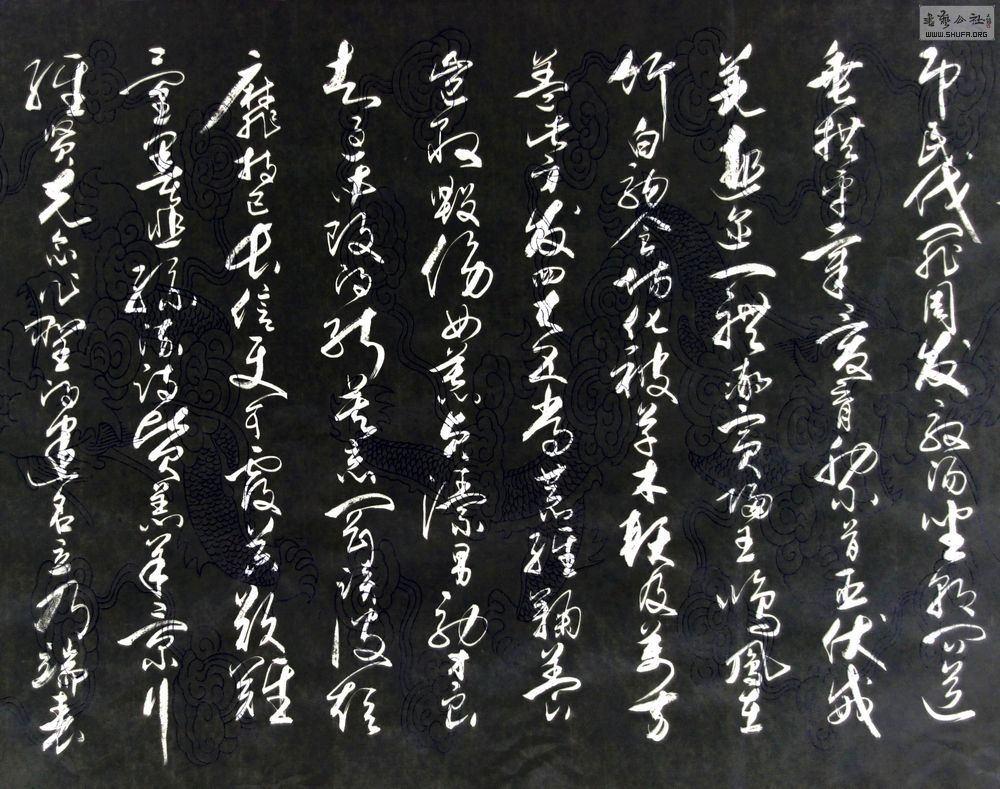 書藝公社
WWW.SHUFA.ORG
吊民伐罪周發殷湯坐朝問道
垂拱平章愛育黎首臣伏戎
羌遐邇一體率賓歸王鳴鳳在
竹白駒食場化被草木賴及萬方
蓋此身髮四大五常恭惟鞠養
豈敢毀傷女慕貞潔男效才良
知過必改得能莫忘罔談彼短
靡恃己長信使可覆器欲難
量墨悲絲染詩讚羔羊景行
維賢克念作聖德建名立形端表